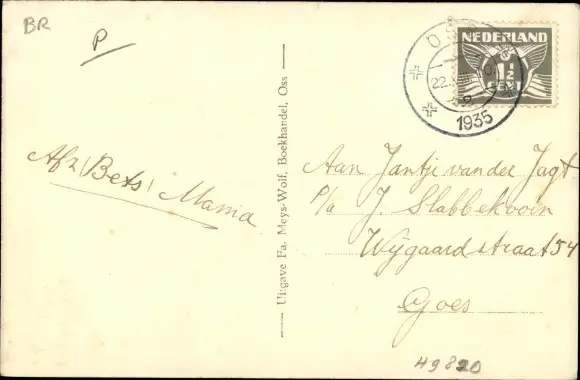 BR
P
Afz. (Bets) Mama
Uitgave Fa. Meys-Wolf, Boekhandel, Oss
OSS
1935
NEDERLAND
1½
CENT
Aan Jantje van der Jagt
p/a J. Slabbekoorn
Wijgaardstraat 54
Goes
49820